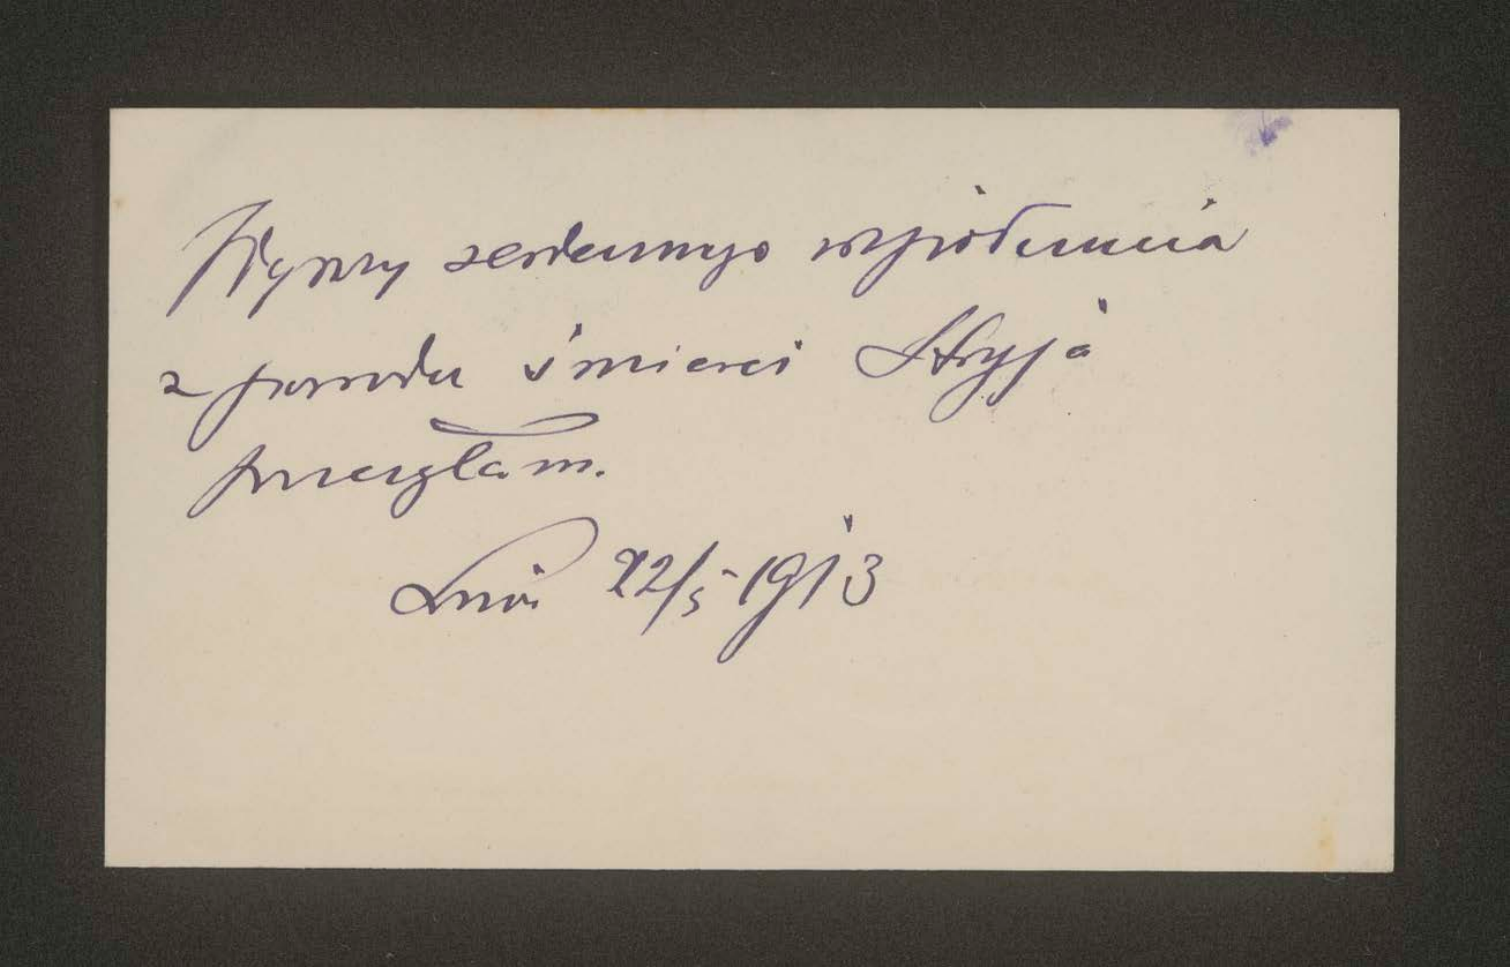 Wyrazy serdecznego współczucia
z powodu śmierci Stryja
przesyłam.
Lwów 22/5 1913